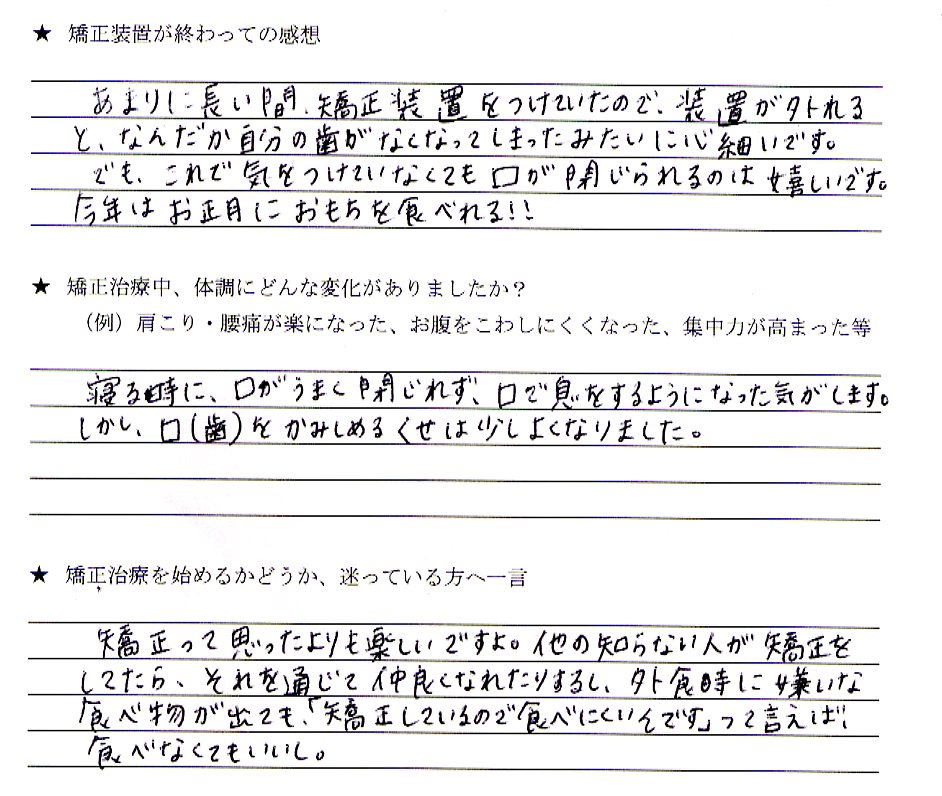 ★ 矯正装置が終わっての感想
あまりに長い間、矯正装置をつけていたので、装置が外れる
と、なんだか自分の歯がなくなってしまったみたいに心細いです。
でも、これで気をつけていなくても口が閉じられるのは嬉しいです。
今年はお正月におもちを食べれる!!
★ 矯正治療中、体調にどんな変化がありましたか？
（例）肩こり・腰痛が楽になった、お腹をこわしにくくなった、集中力が高まった等
寝る時に、口がうまく閉じれず、口で息をするようになった気がします。
しかし、口(歯)をかみしめるくせは少しよくなりました。
★ 矯正治療を始めるかどうか、迷っている方へ一言
矯正って思ったよりも楽しいですよ。他の知らない人が矯正を
してたら、それを通じて仲良くなれたりするし、外食時に嫌いな
食べ物が出ても、「矯正しているので食べにくいんです」って言えば、
食べなくてもいいし。